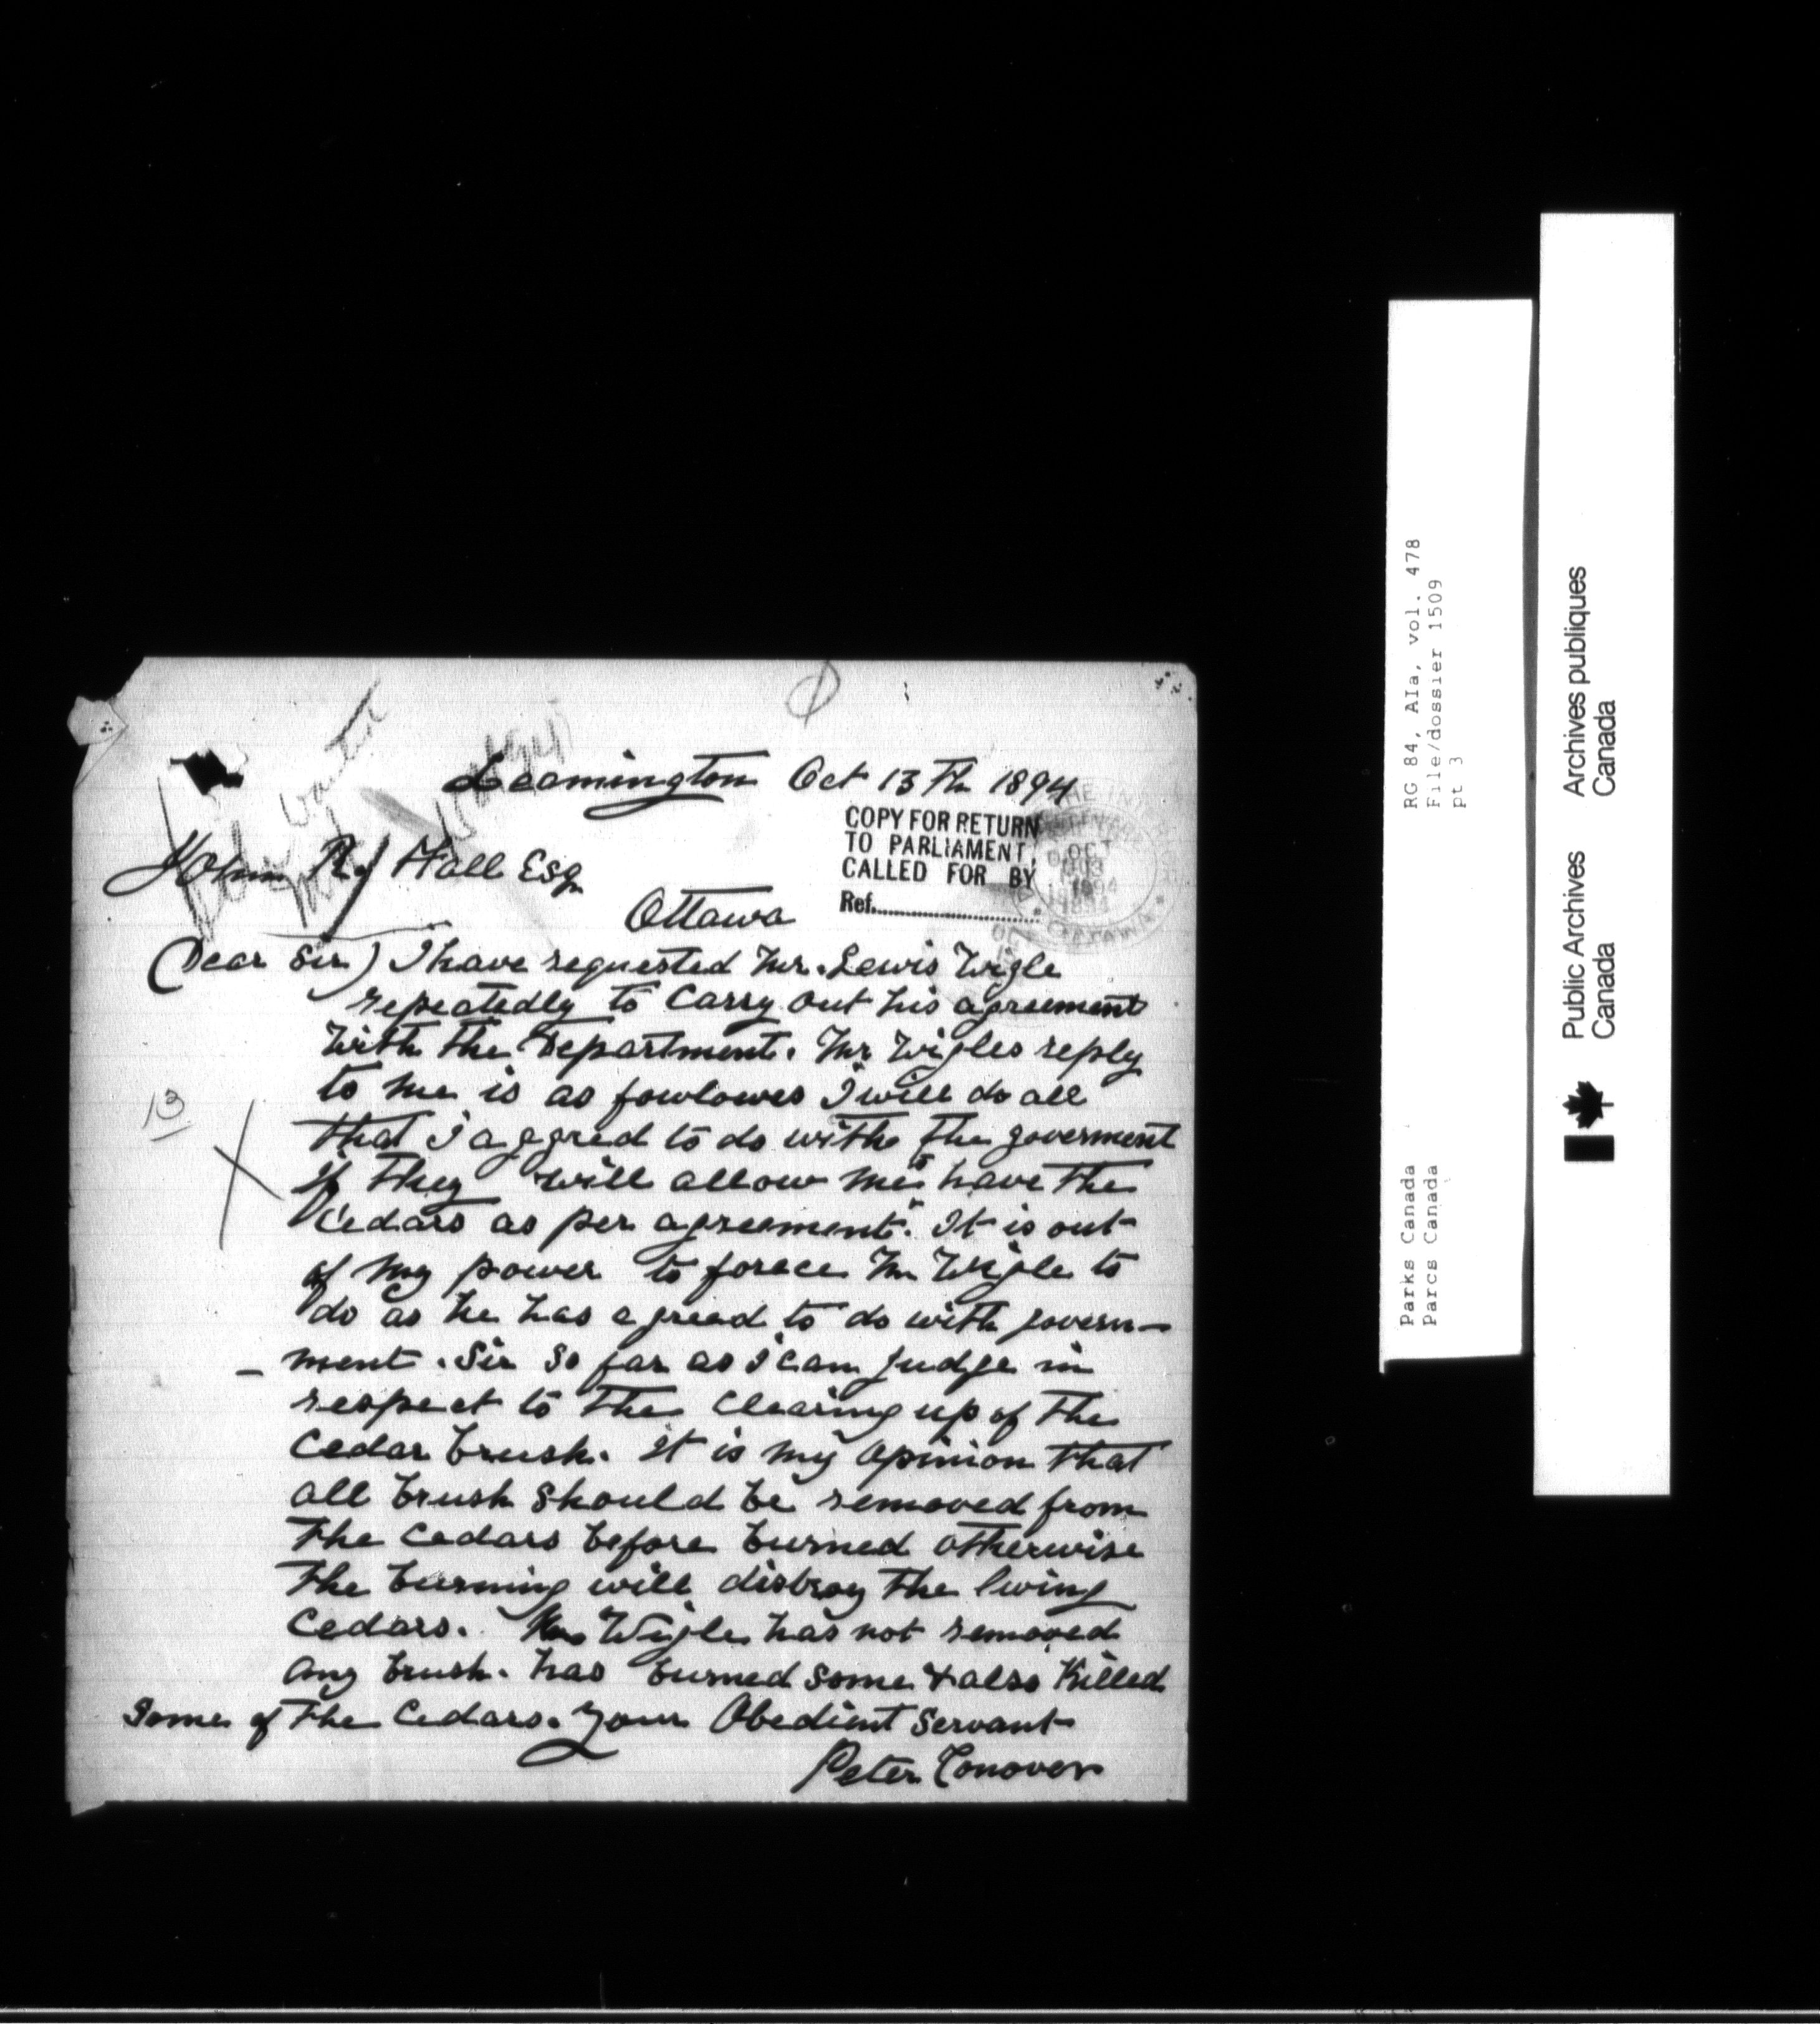 Leamington Oct 13 Th 1894
COPY FOR RETURN
TO PARLIAMENT,
CALLED FOR BY
Ref.
John R. Hall Esq
Ottawa
(Dear Sir) I have requested Mr. Lewis Wigle
repeatedly to Carry out his agreement
With the Department. Mr Wigles reply
to me is as fowlowes I will do all
that I aggred to do withe the goverment
If they will allow me to have the
Cedars as per agreement." It is out
of my power to forece Mr Wigle to
do as he has agreed to do with govern-
- ment. Sir so far as I can judge in
respect to the Clearing up of the
Cedar brush. it is my opinion that
all brush should be removed from
the Cedars before burned otherwise
the burning will distroy the living
Cedars. Mr Wigle has not removed
any brush. has burned some & also Killed
Some of the Cedars. Your Obedient Servant
Peter Conover
13
RG 84, A1a, vol. 478
File/dossier 1509
pt 3
Parks Canada
Parcs Canada
Public Archives
Canada
Archives publiques
Canada